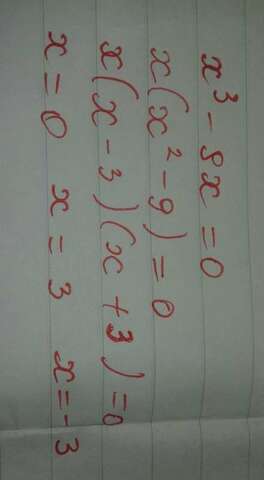 x³ - 8x = 0
x(x² - 9) = 0
x(x - 3)(x + 3) = 0
x = 0 x = 3 x = -3